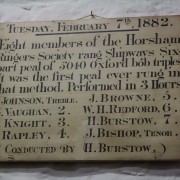 Tuesday, February 7th, 1882.
Eight members of the Horsham
Ringers Society rang Shipway's Six
part peal of 5040 Oxford bob triples
It was the first peal ever rung in
that method. Performed in 3 Hours
Johnson, Treble. J. Browne, 5.
Vaughan, 2. W. H. Redford, 6.
Knight, 3. H. Burstow, 7.
Rapley, 4. J. Bishop, Tenor.
Conducted by H. Burstow,